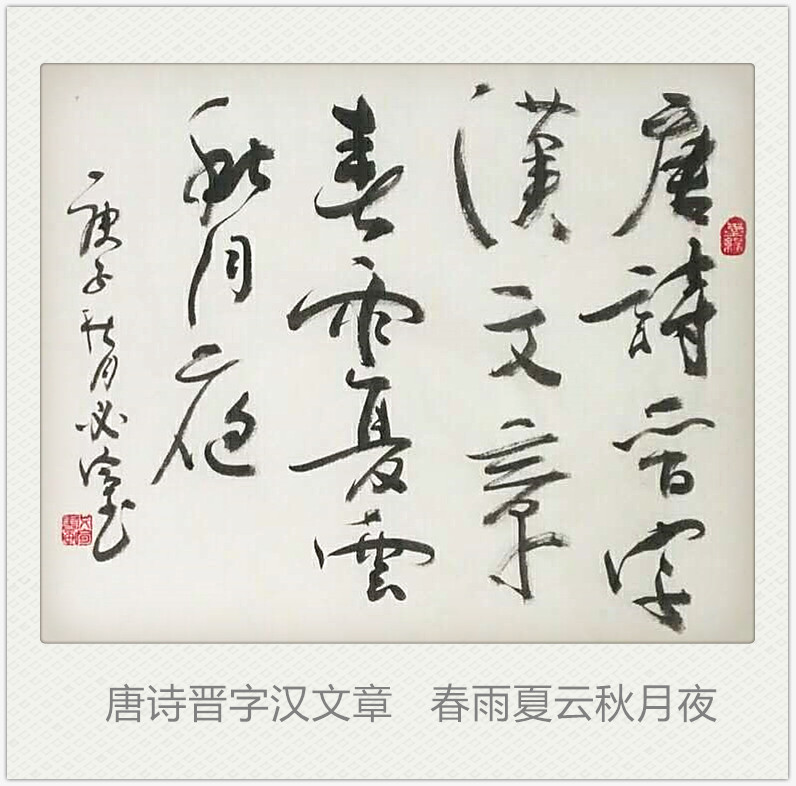 唐詩晋字
漢文章
春雨夏雲
秋月夜
庚子秋月必
唐诗晋字汉文章 春雨夏云秋月夜